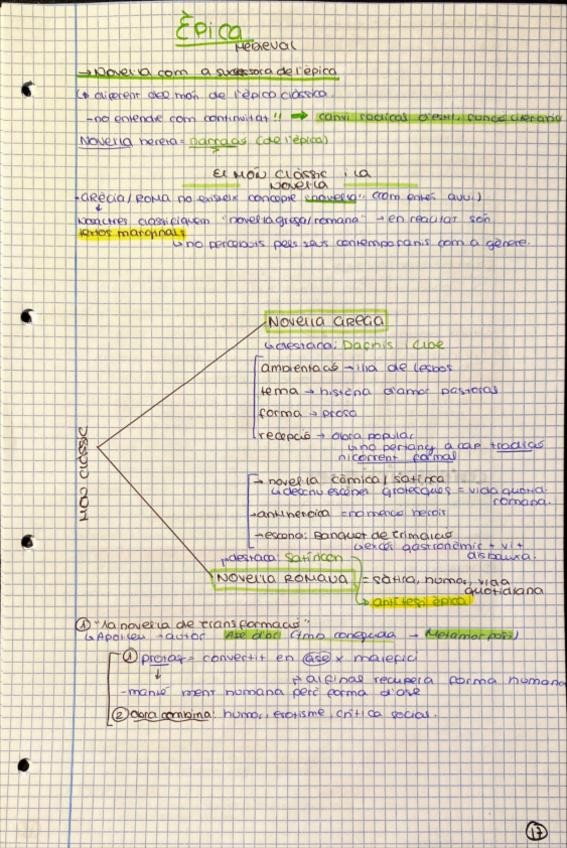 Èpica
Medieval
→ Novel·la com a successora de l'èpica
↳ diferent del món de l'èpica clàssica.
- no entendre com continuïtat!! → canvi radical d'estil, funció literària
Novel·la hereta = narradas (de l'èpica)
El món clàssic i la
novel·la
- Grècia/Roma no existeix concepte "novel·la" (com entès avui)
nosaltres classifiquem "novel·la grega/romana" → en realitat són
textos marginals
↳ no percebuts pels seus contemporanis com a gènere.
Novel·la grega
↳ destaca: Dafnis i Cloe
ambientació → illa de Lesbos
tema → història d'amor pastoral
forma → prosa
recepció → obra popular
↳ no pertany a cap tradició
ni corrent formal
Món clàssic
→ novel·la còmica/satírica
↳ descriu escenes grotesques = vida quotid.
romana.
→ antiheroica = no menció herois
→ escena: Banquet de Trimalció
↳ excés gastronòmic + vi +
disbauxa.
destaca: Satiricon
Novel·la romana = sàtira, humor, vida
quotidiana
↳ antítesi èpica
① "la novel·la de transformació"
↳ Apuleu → autor Ase d'or (tmb coneguda → Metamorfosi)
① protag = convertit en ase x malefici
↳ al final recupera forma humana
- manté ment humana però forma d'ase
② obra combina: humor, erotisme, crítica social.
17